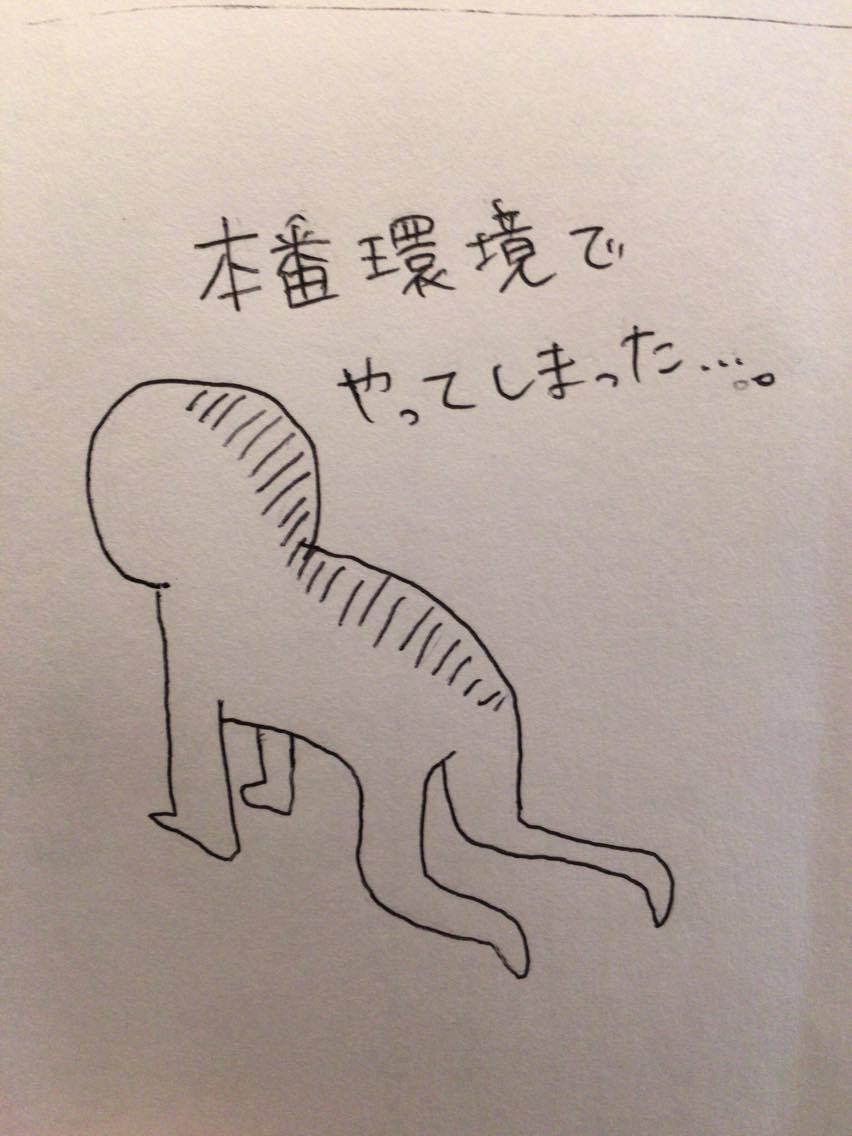 本番環境で
やってしまった...。